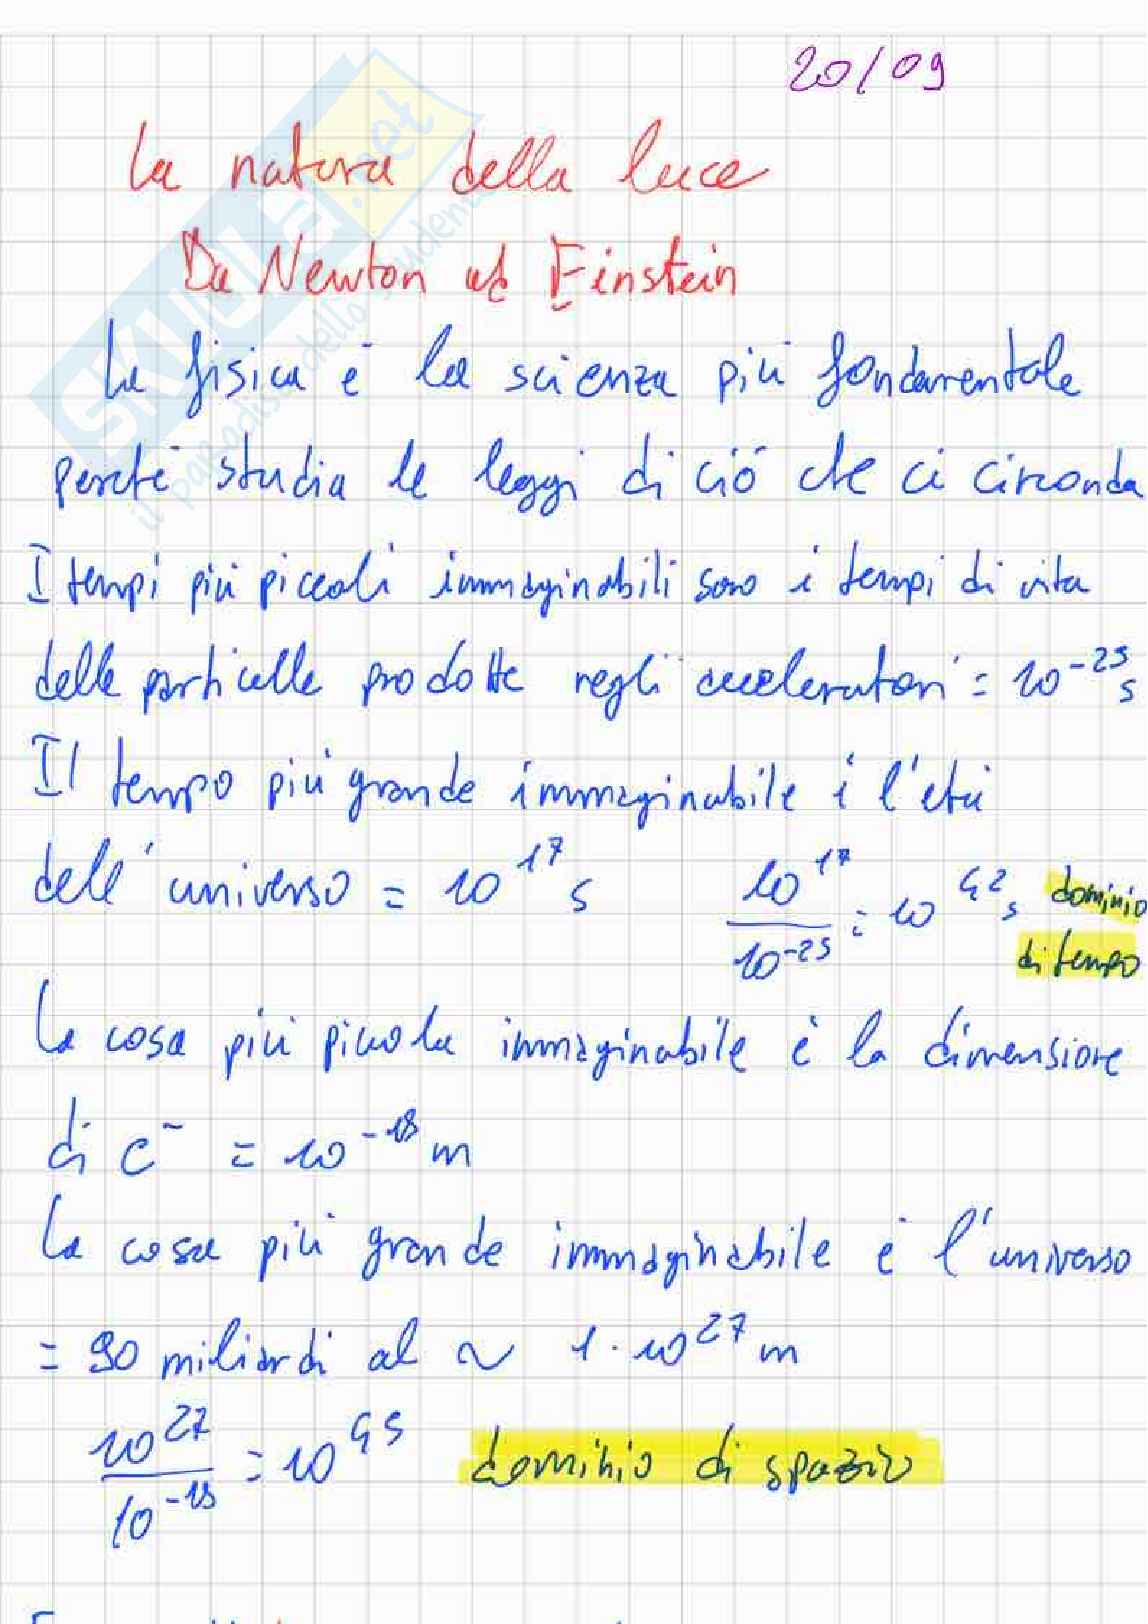 20/09
La natura della luce
Da Newton ad Einstein
La fisica è la scienza più fondamentale
perché studia le leggi di ciò che ci circonda
I tempi più piccoli immaginabili sono i tempi di vita
delle particelle prodotte negli acceleratori = 10^-25 s
Il tempo più grande immaginabile è l'età
dell'universo = 10^17 s 10^17/10^-25 = 10^42 s dominio
di tempo
La cosa più piccola immaginabile è la dimensione
di e^- = 10^-18 m
La cosa più grande immaginabile è l'universo
= 90 miliardi al ~ 1·10^27 m
10^27/10^-18 = 10^45 dominio di spazio
SKUOLA.net
il paradiso dello studente